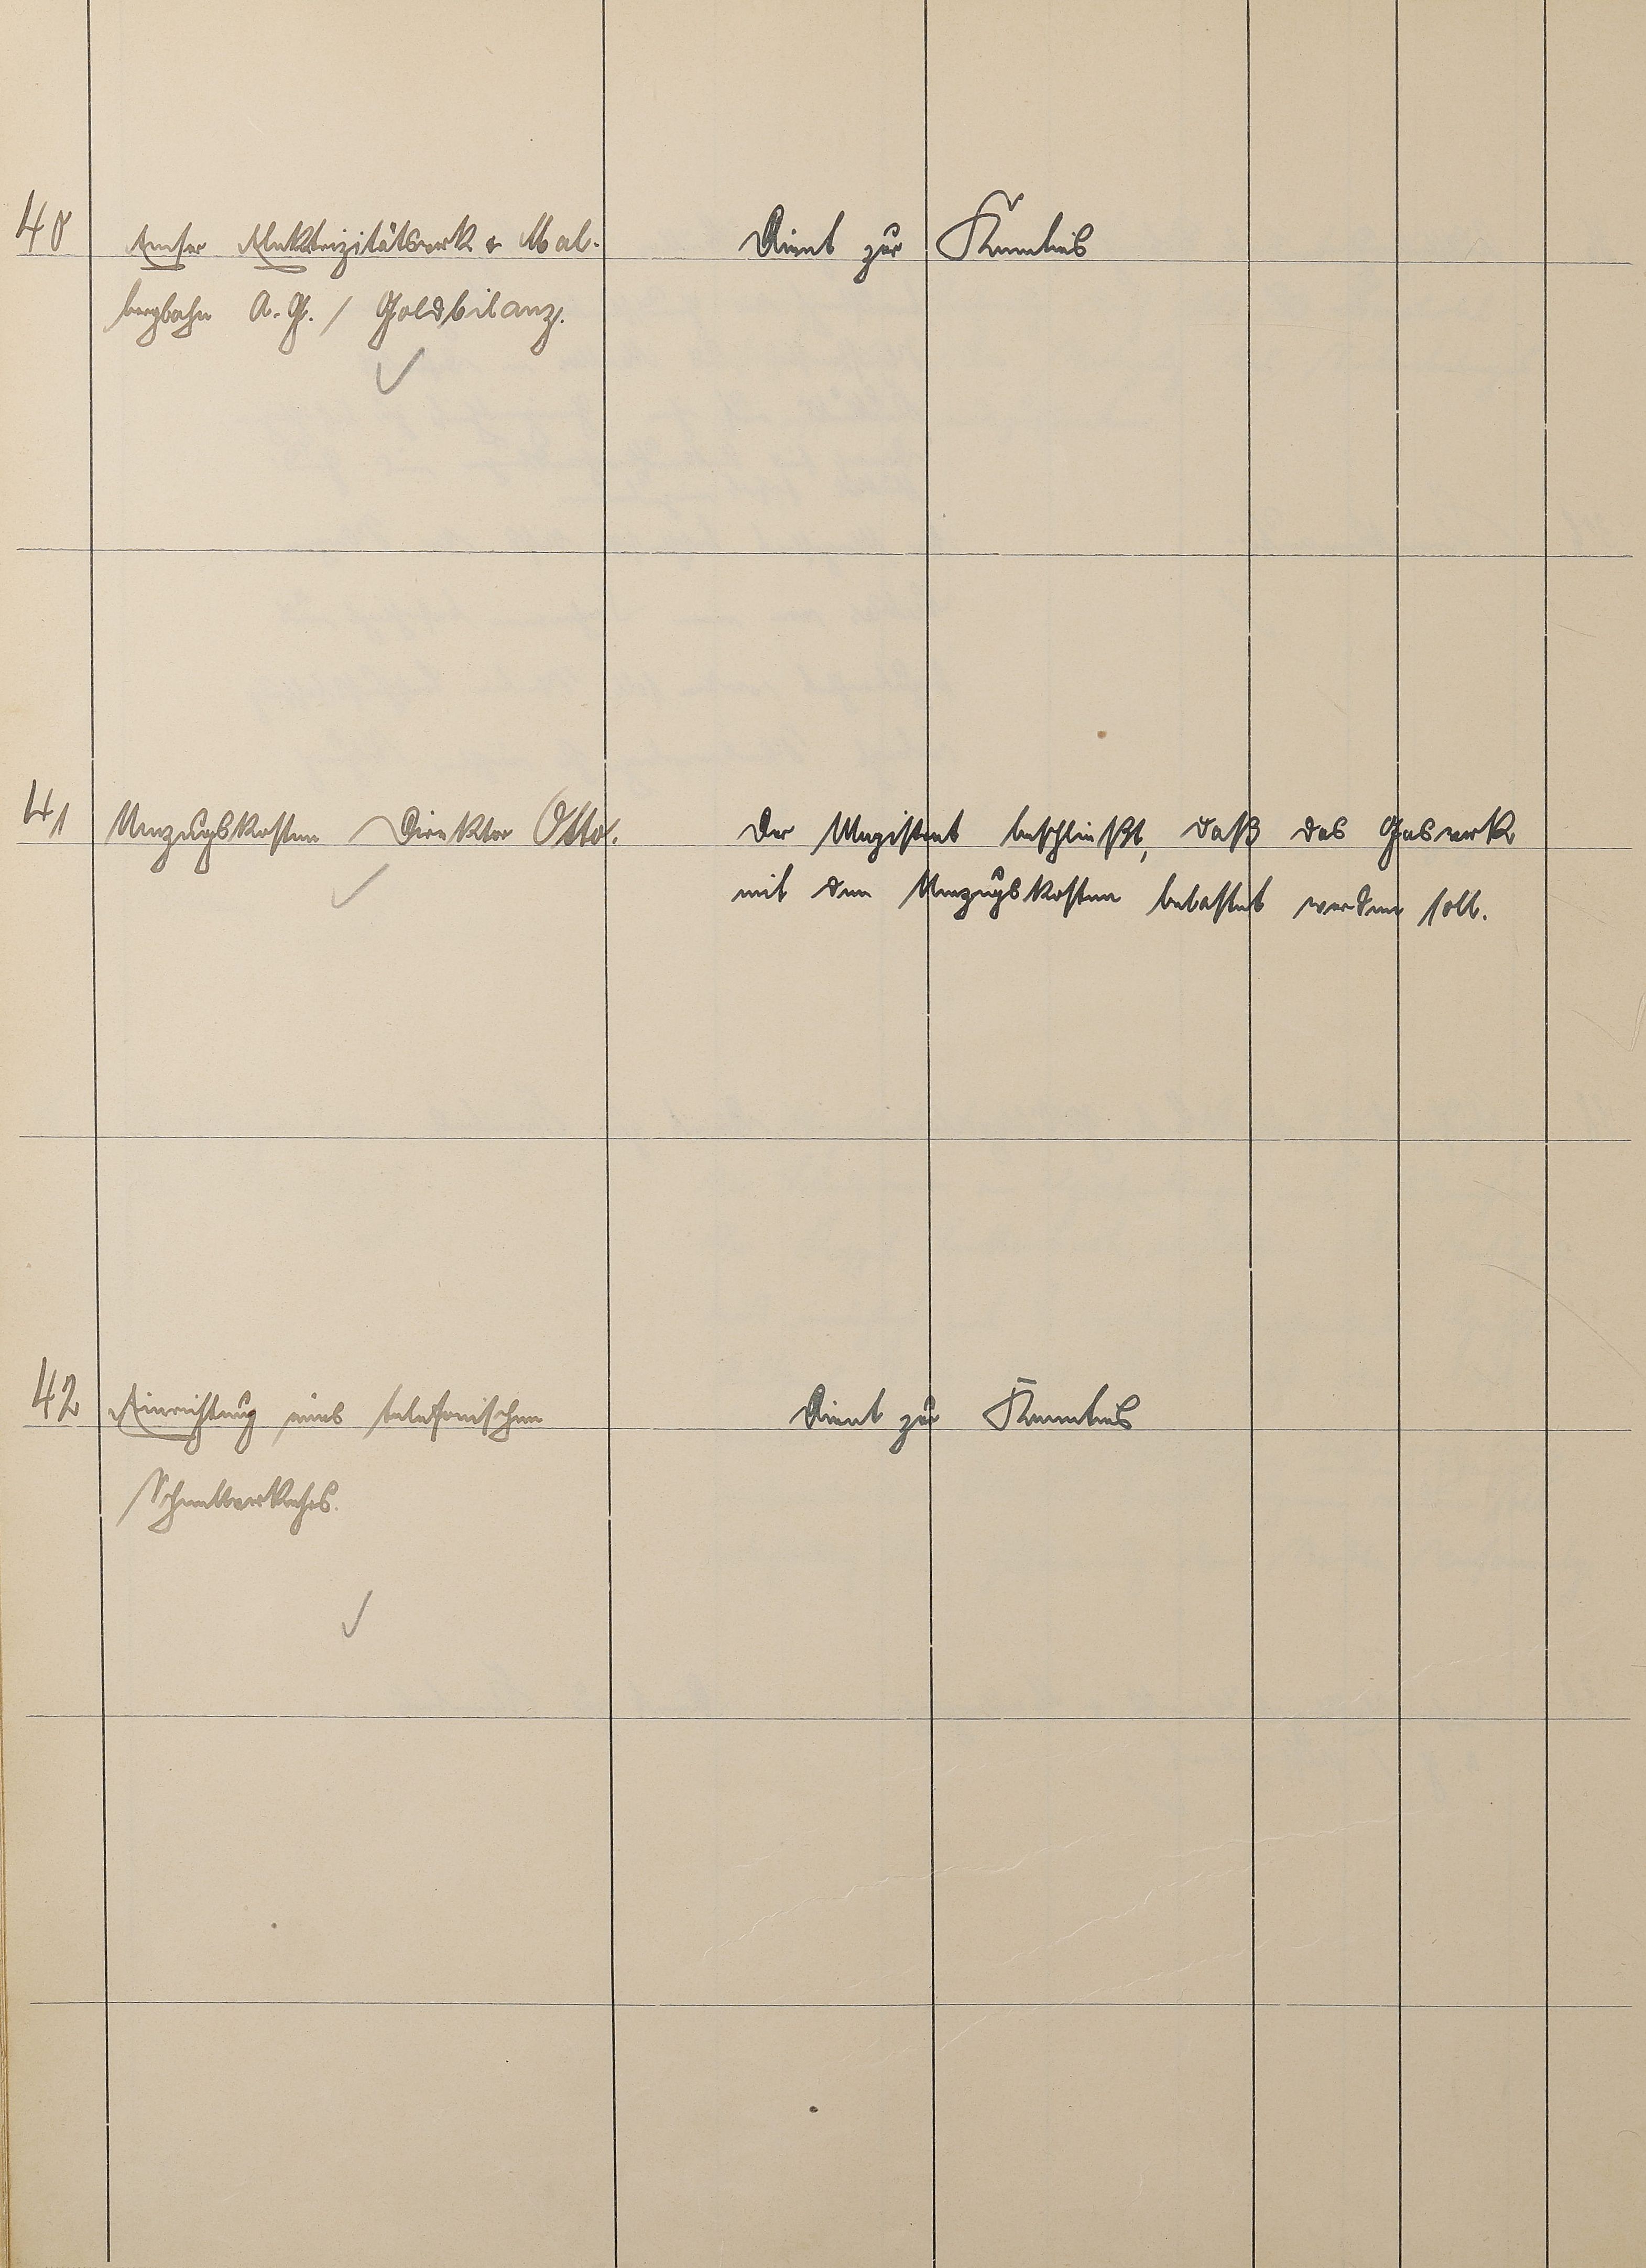 40 Emser Elektrizitätswerk & Mal- Dient zur Kenntnis
bergbahn A.G. / Goldbilanz.
41 Umzugskosten Direktor Otto. Der Magistrat beschließt, daß das Gaswerk
mit den Umzugskosten belastet werden soll.
42 Einrichtung eines telefonischen Dient zur Kenntnis
Schnellverkehrs.